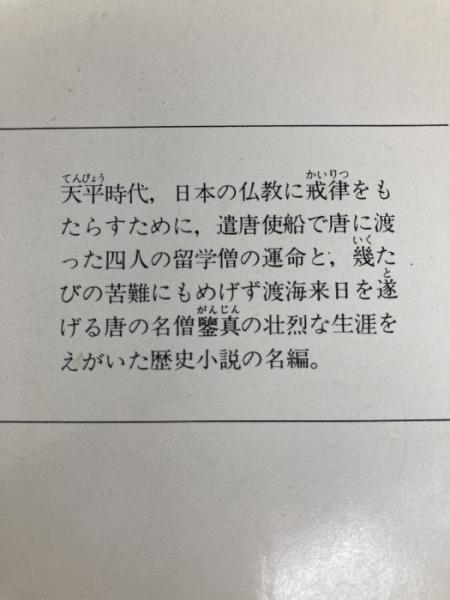 天平時代，日本の仏教に戒律をも
たらすために，遣唐使船で唐に渡
った四人の留学僧の運命と，幾た
びの苦難にもめげず渡海来日を遂
げる唐の名僧鑒真の壮烈な生涯を
えがいた歴史小説の名編。